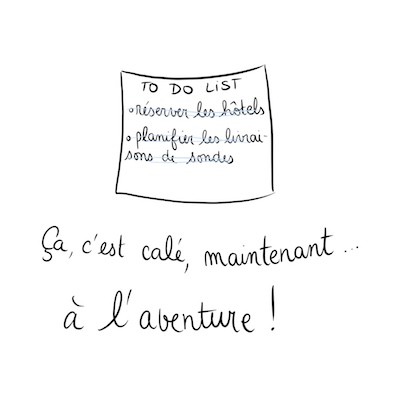 TO DO LIST
• réserver les hôtels
• planifier les livrai-
sons de sondes
Ça, c'est calé, maintenant...
à l'aventure !